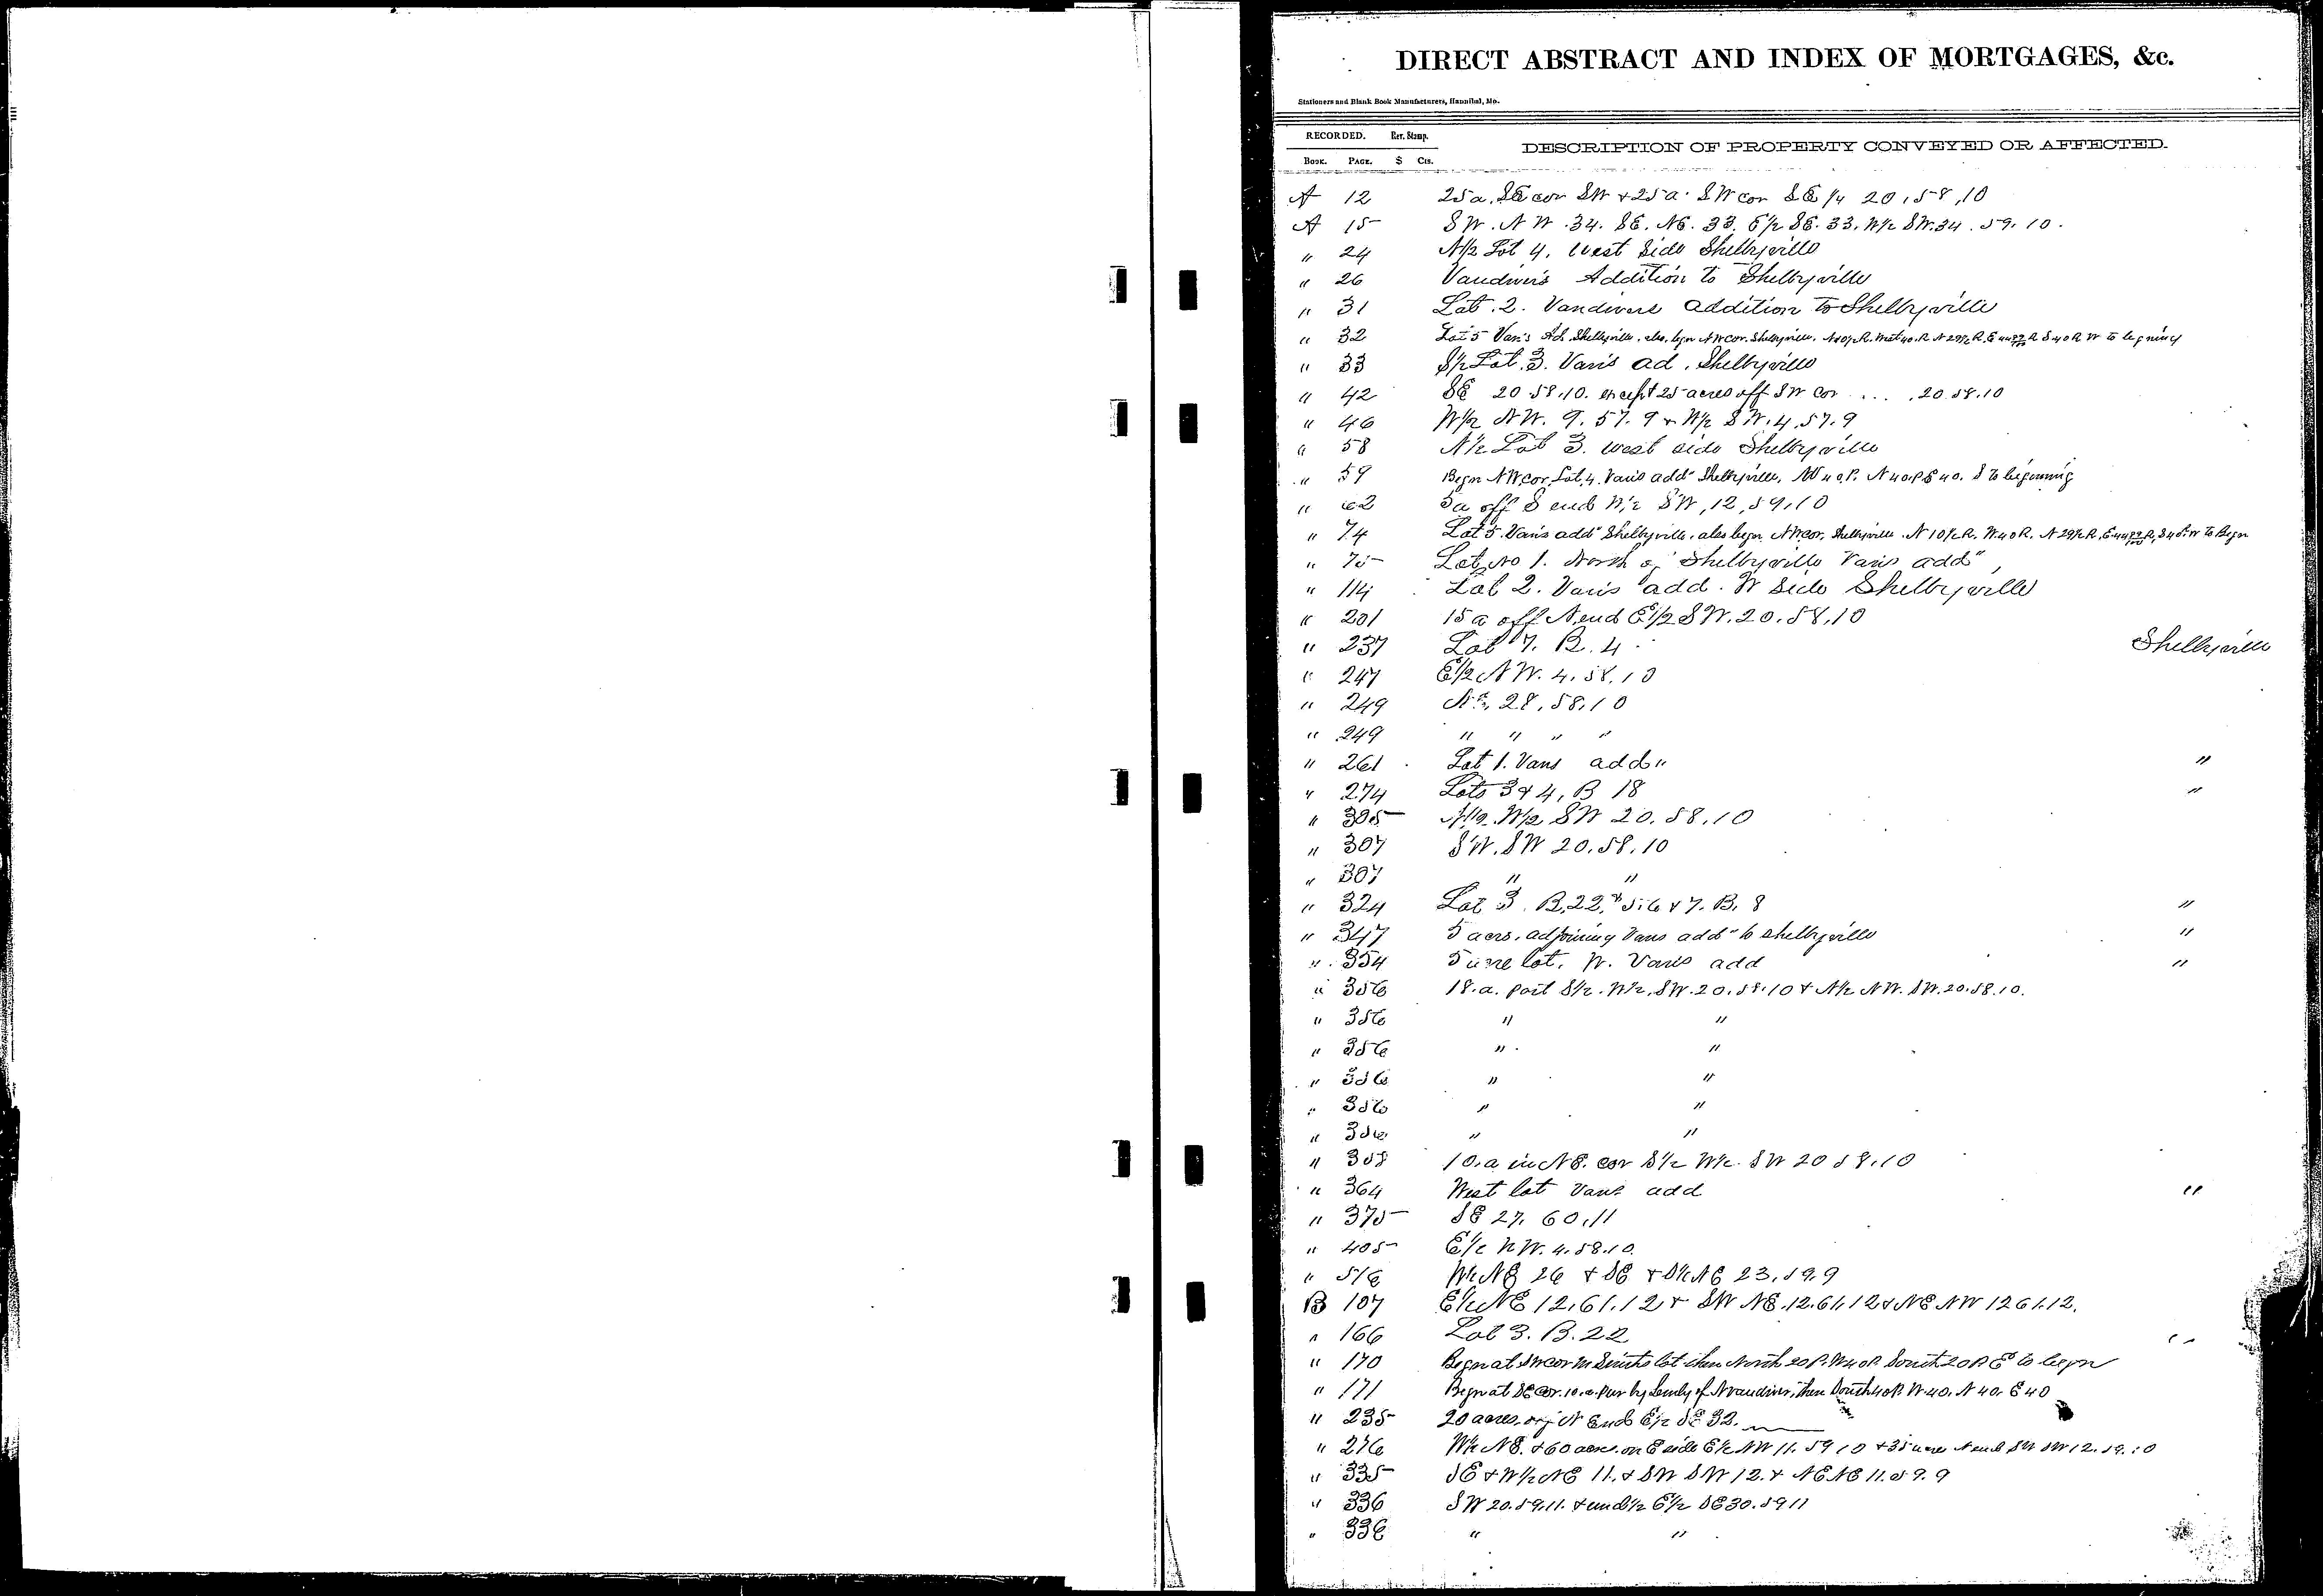 DIRECT ABSTRACT AND INDEX OF MORTGAGES, &c.
Stationers and Blank Book Manufacturers, Hannibal, Mo.
RECORDED. Rev. Stamp.
DESCRIPTION OF PROPERTY CONVEYED OR AFFECTED.
BOOK. PAGE. $ Cts.
A 12 25 a. SE cor SW & 25 a. SW cor SE 1/4 20, 58, 10
A 15 SW. NW. 34. SE. NE. 33. E 1/2 SE. 33. W 1/2 SW. 34. 59. 10.
" 24 N 1/2 Lot 4. West Side Shelbyville
" 26 Vandivers Addition to Shelbyville
" 31 Lot. 2. Vandivers addition to Shelbyville
" 32 Lot 5 Van's Ad. Shelbyville, also, begn NW cor. Shelbyville. N 10 1/2 R. West 40. R N 29 1/2 R. E 44 R S 40 R W to begining
" 33 S 1/2 Lot. 3. Van's ad. Shelbyville
" 42 SE 20 58.10. except 25 acres off SW cor .... 20.58.10
" 46 W 1/2 NW. 9. 57. 9 & W 1/2 SW. 4. 57. 9
" 58 N 1/2 Lot 3. west side Shelbyville
" 59 Begn NW cor, Lot, 4. Van's add" Shelbyville, W 40 P. N 40 P E 40. S to beginning
" 62 5 a off S end W 1/2 SW, 12, 59, 10
" 74 Lot 5. Van's add" Shelbyville. also begn. NW cor, Shelbyville. N 10 1/2 R. W 40 R. N 29 1/2 R, E 44 R, S 40. W to Begn
" 75 Lot, No 1. North of Shelbyville Van's add"
" 114 Lot 2. Van's add. W Side Shelbyville
" 201 15 a off N end E 1/2 SW. 20. 58, 10
" 237 Lot 7. B. 4 Shelbyville
" 247 E 1/2 NW. 4. 58. 10
" 249 28, 58, 10
" 249 " " " "
" 261 Lot 1. Vans add" "
" 274 Lots 3 & 4, B 18 "
" 305 N 1/2. W 1/2 SW 20. 58. 10
" 307 SW. SW 20. 58. 10
" 307 " "
" 324 Lot 3. B. 22, & 5. 6 & 7. B. 8 "
" 347 5 acrs. adjoining Vans add" to Shelbyville "
" 354 5 acre lot. W. Van's add "
" 356 18. a. part S 1/2. W 1/2, SW. 20. 58. 10 & N 1/2 NW. SW. 20. 58. 10.
" 356 " "
" 356 " "
" 356 " "
" 356 " "
" 356 " "
" 358 10. a in NE. cor S 1/2 W 1/2. SW 20 58. 10
" 364 West lot Vans add "
" 375 SE 27. 60. 11
" 405 E 1/2 NW. 4. 58. 10.
" 516 W 1/2 NE 26 & SE & S 1/2 NE 23. 59. 9
B 107 E 1/2 NE 12. 61. 12 & SW NE. 12. 61. 12 & NE NW 12 61. 12.
" 166 Lot 3. B. 22 "
" 170 Begn at SW cor Smiths lot then North 20 P. W 40 P. South 20 P. E to begn
" 171 Begn at SE cor. 10. a. by of Vandiver, then South 40 P. W. 40. N 40. E 40
" 235 20 acres. off N End E 1/2 SE 32.
" 276 W 1/2 NE. & 60 acres. on E side E 1/2 NW 11. 59 10 & 35 acres N end SW SW 12. 59. 10
" 335 SE & W 1/2 NE 11. & SW SW 12. & NE NE 11. 59. 9
" 336 SW 20. 59. 11. & und 1/2 E 1/2 SE 30. 59 11
" 336 " "